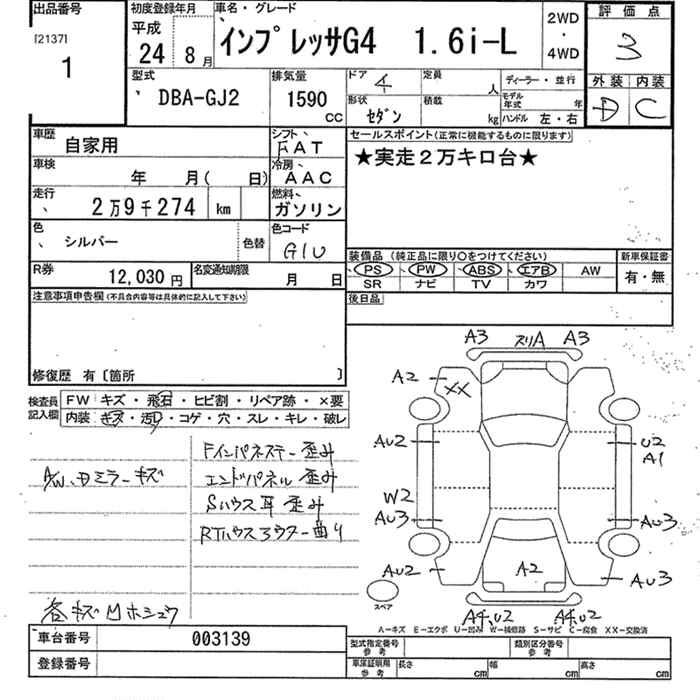 出品番号
[2137]
1
初度登録年月
平成
24 8月
車名・グレード
インプレッサG4 1.6i-L
2WD
・
4WD
評価点
3
外装 内装
D C
型式
DBA-GJ2
排気量
1590
CC
ドア 4
形状 セダン
定員 人
積載 kg
ディーラー・並行
モデル年式 年
ハンドル 左・右
車歴 自家用
シフト FAT
車検 年 月( 日)
冷房 AAC
走行 2万9千274 km
燃料 ガソリン
色 シルバー 色替
色コード G1U
R券 12,030円
名変通知期限 月 日
セールスポイント(正常に機能するものに限ります)
★実走2万キロ台★
装備品(純正品に限り○をつけてください)
PS PW ABS エアB AW
SR ナビ TV カワ
新車保証書
有・無
後日品
注意事項申告欄(不具合内容等は具体的に記入して下さい)
修復歴 有〔箇所 〕
検査員記入欄
FW キズ・飛石・ヒビ割・リペア跡・×要
内装 キズ・汚れ・コゲ・穴・スレ・キレ・破レ
Fインパネステー歪み
AW、ドミラーキズ
エンドパネル歪み
Sハウス耳歪み
RTハウスアウター曲り
各キズ凹ホシュウ
A3 スリA A3
A2 XX
AU2 U2
A1
W2
AU3 AU3
AU2 A2 AU3
スペア
A4,U2 A4,U2
A―キズ E―エクボ U―凹み W―補修跡 S―サビ C―腐食 XX―交換済
車台番号 003139
登録番号
型式指定番号 参考
類別区分番号 参考
車庫証明用 参考
長さ cm 幅 cm 高さ cm